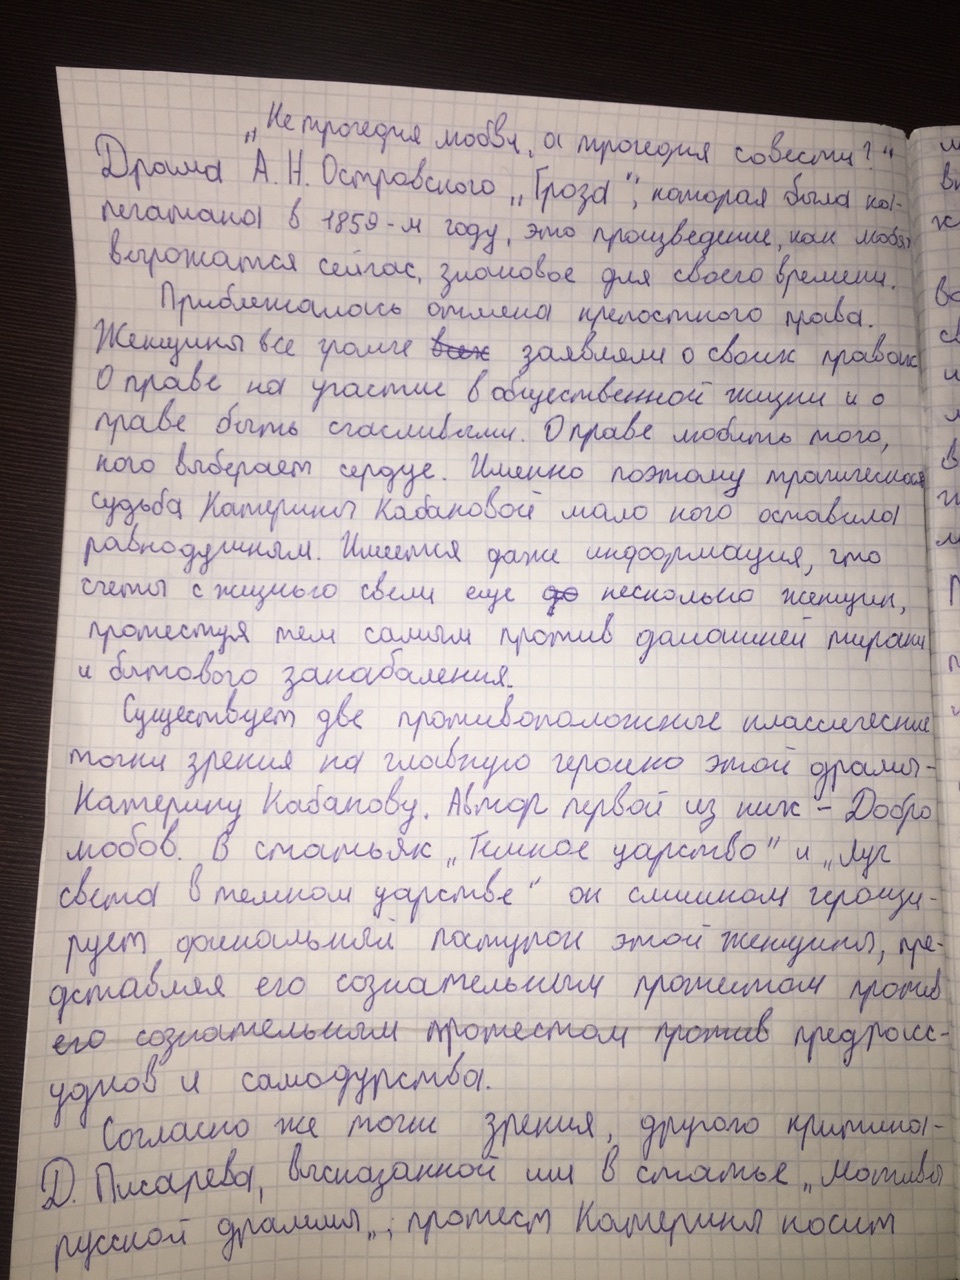 „Не трагедия любви, а трагедия совести?"
Драма А. Н. Островского „Гроза", которая была на-
печатана в 1859-м году, это произведение, как любят
выражатся сейчас, знаковое для своего времени.
Приближалась отмена крепостного права.
Женщины все громче всех заявляли о своих правах
О праве на участие в общественной жизни и о
праве быть счасливыми. О праве любить того,
кого выберает сердце. Именно поэтому трагическая
судьба Катерины Кабановой мало кого оставила
равнодушным. Имеется даже информация, что
счеты с жизнью свели еще до несколько женщин,
протестуя тем самым против домашней тирани
и бытового закабаления.
Существует две противоположные классические
точки зрения на главную героиню этой драмы-
Катерину Кабанову. Автор первой из них - Добро
любов. В статьях „Темное царство" и „Луч
света в темном царстве" он слишком героизи-
рует финальный поступок этой женщины, пре-
дставляя его сознательным протестом против
его сознательным протестом против предрасс-
удков и самодурства.
Согласно же точке зрения, другого критика-
Д. Писарева, высказанной им в статье „Мотивы
русской драммы„, протест Катерины носит